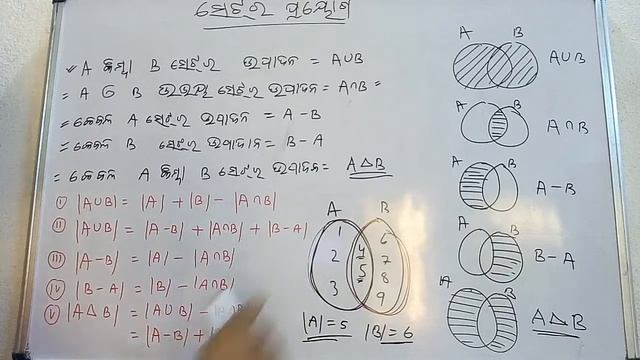 ସେଟ୍‌ର ପ୍ରୟୋଗ
* A କିମ୍ବା B ସେଟ୍‌ର ଉପାଦାନ = A∪B
= A ଓ B ଉଭୟ ସେଟ୍‌ର ଉପାଦାନ = A∩B =
= କେବଳ A ସେଟ୍‌ର ଉପାଦାନ = A-B
= କେବଳ B ସେଟ୍‌ର ଉପାଦାନ = B-A
= କେବଳ A କିମ୍ବା B ସେଟ୍‌ର ଉପାଦାନ = A△B
i) |A∪B| = |A| + |B| - |A∩B|
ii) |A∪B| = |A-B| + |A∩B| + |B-A|
iii) |A-B| = |A| - |A∩B|
iv) |B-A| = |B| - |A∩B|
v) |A△B| = |A∪B| -
= |A-B| +
A B
1 6
2 4 7
5 8
3 9
|A| = 5 |B| = 6
A B A∪B
A B A∩B
A B A-B
A B B-A
A B A△B